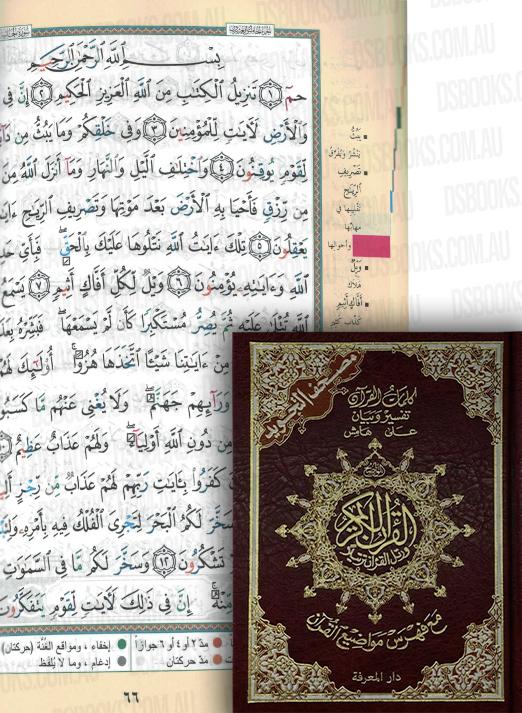 بِسْمِ اللَّهِ الرَّحْمَٰنِ الرَّحِيمِ
حمٓ ١ تَنزِيلُ الْكِتَٰبِ مِنَ اللَّهِ الْعَزِيزِ الْحَكِيمِ ٢ إِنَّ فِي
وَالْأَرْضِ لَآيَٰتٍ لِّلْمُؤْمِنِينَ ٣ وَفِي خَلْقِكُمْ وَمَا يَبُثُّ مِن
لِقَوْمٍ يُوقِنُونَ ٤ وَاخْتِلَٰفِ اللَّيْلِ وَالنَّهَارِ وَمَا أَنزَلَ اللَّهُ مِنَ
مِن رِّزْقٍ فَأَحْيَا بِهِ الْأَرْضَ بَعْدَ مَوْتِهَا وَتَصْرِيفِ الرِّيَٰحِ
يَعْقِلُونَ ٥ تِلْكَ ءَايَٰتُ اللَّهِ نَتْلُوهَا عَلَيْكَ بِالْحَقِّ فَبِأَيِّ
اللَّهِ وَءَايَٰتِهِ يُؤْمِنُونَ ٦ وَيْلٌ لِّكُلِّ أَفَّاكٍ أَثِيمٍ ٧ يَسْمَعُ
اللَّهِ تُتْلَىٰ عَلَيْهِ ثُمَّ يُصِرُّ مُسْتَكْبِرًا كَأَن لَّمْ يَسْمَعْهَا فَبَشِّرْهُ
مِنْ ءَايَٰتِنَا شَيْئًا اتَّخَذَهَا هُزُوًا أُولَٰئِكَ لَهُمْ
وَرَائِهِمْ جَهَنَّمُ وَلَا يُغْنِي عَنْهُم مَّا كَسَبُوا
مِن دُونِ اللَّهِ أَوْلِيَاءَ وَلَهُمْ عَذَابٌ عَظِيمٌ ١٠
كَفَرُوا بِـَٔايَٰتِ رَبِّهِمْ لَهُمْ عَذَابٌ مِّن رِّجْزٍ أَلِيمٌ
سَخَّرَ لَكُمُ الْبَحْرَ لِتَجْرِيَ الْفُلْكُ فِيهِ بِأَمْرِهِ
تَشْكُرُونَ ١٢ وَسَخَّرَ لَكُم مَّا فِي السَّمَٰوَٰتِ
مِّنْهُ إِنَّ فِي ذَٰلِكَ لَآيَٰتٍ لِّقَوْمٍ يَتَفَكَّرُونَ
يَبُثُّ
يَنْشُرُ وَيُفَرِّقُ
تَصْرِيفِ
الرِّيَٰحِ
تَقْلِيبِهَا فِي
مهابّها
وأحوالها
وَيْلٌ
هلاك
أَفَّاكٍ أَثِيمٍ
كذّاب كثير
مدّ ٢ أو ٤ أو ٦ جوازاً
إخفاء ، ومواقع الغُنَّة (حركتان)
مدّ حركتان
إدغام ، وما لا يُلفَظ
٦٦
مصحف التجويد
كلمات القرآن
تفسير وبيان
على هامش
القرآن الكريم
ورتل القرآن ترتيلا
مع فهرس مواضيع القرآن
دار المعرفة
DSBOOKS.COM.AU